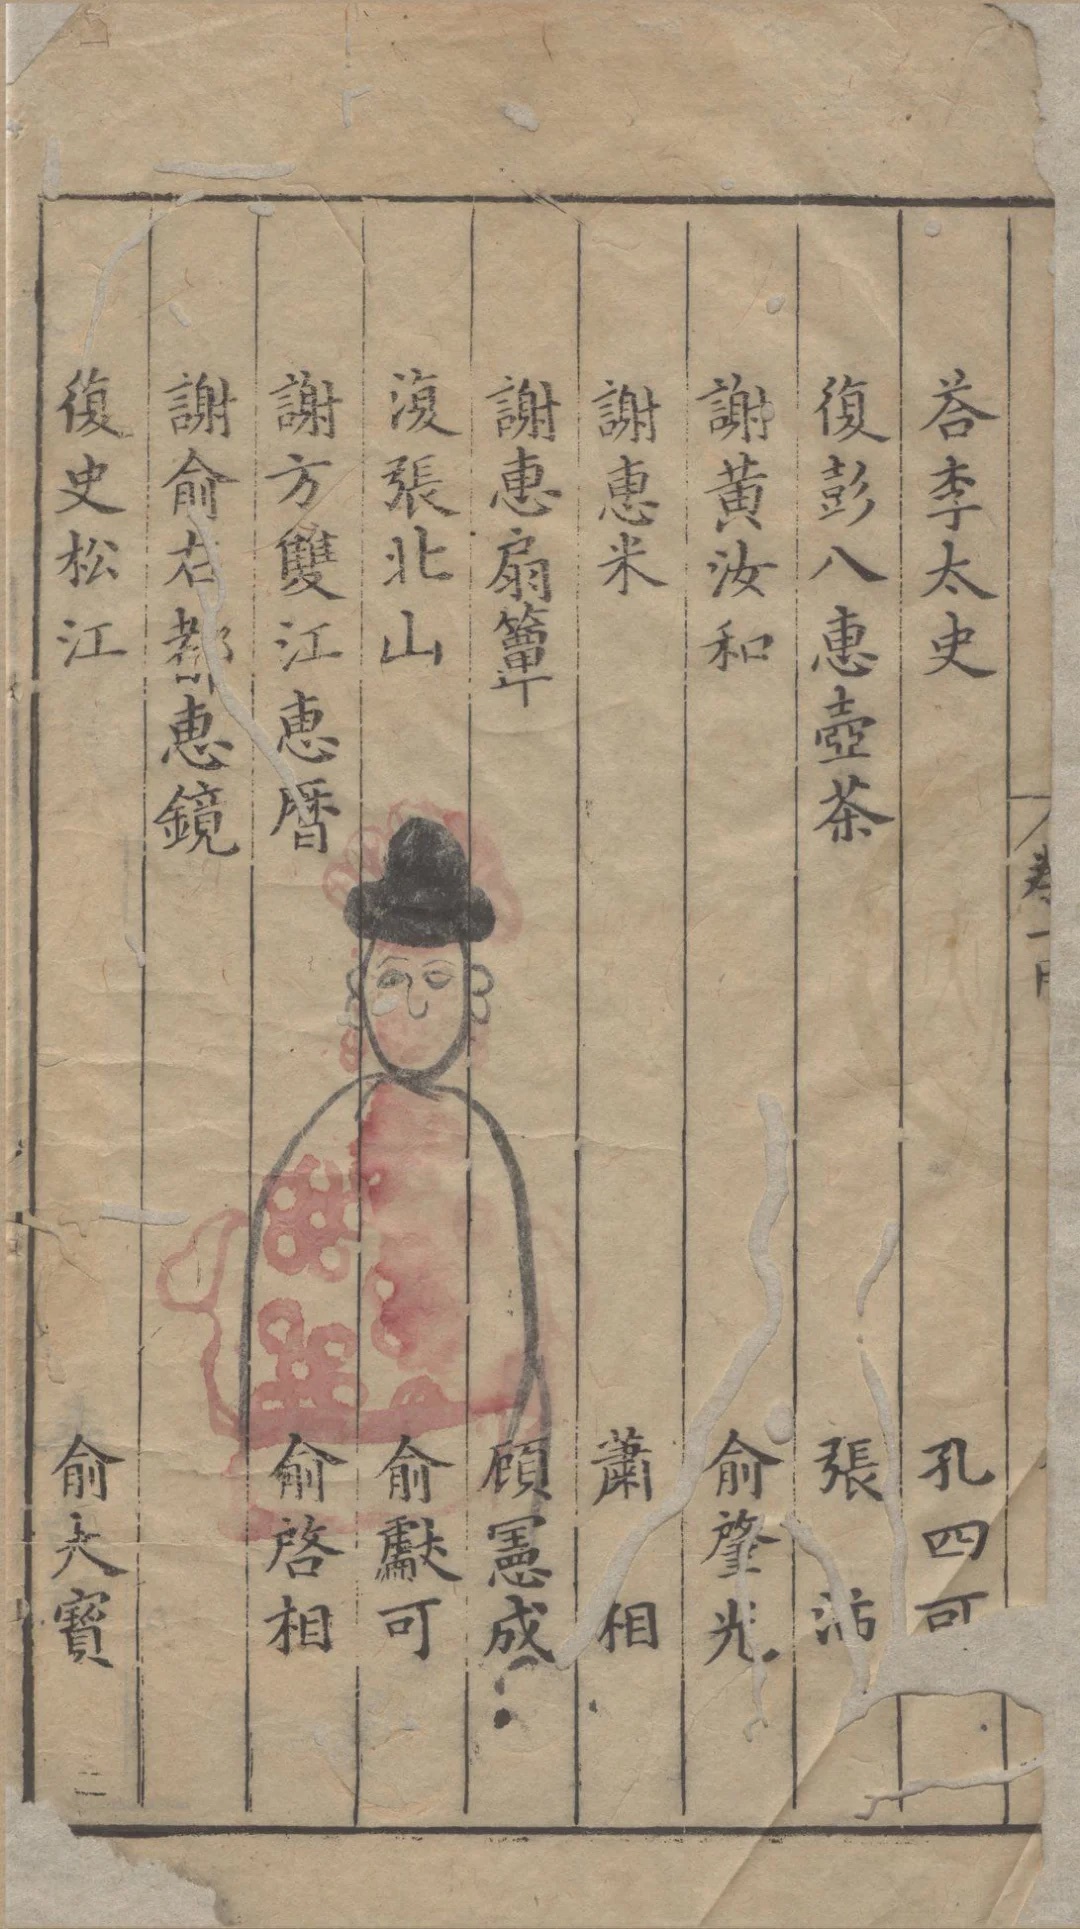 荅李太史 孔四可
復彭八惠壺茶 張 沾
謝黃汝和 俞肇光
謝惠米 蕭 相
謝惠扇簟 顧憲成
復張北山 俞獻可
謝方雙江惠曆 俞啓相
謝俞右都惠鏡
復史松江 俞大寶
卷一
二